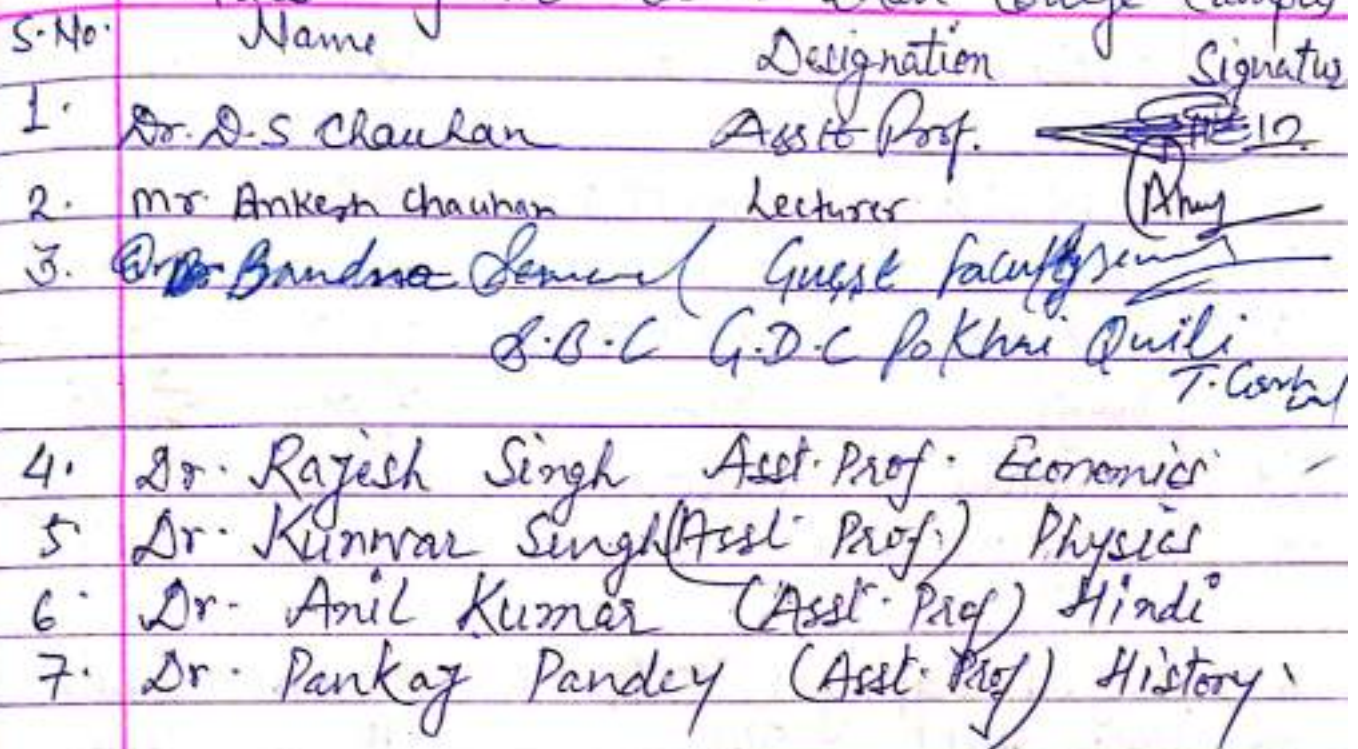 College Campus
S.No. Name Designation Signatur
1. Dr. D.S Chauhan Asstt Prof.
2. Mr. Ankesh Chauhan Lecturer
3. Guest faculty
S.B.C G.D.C Pokhri Quili
4. Dr. Rajesh Singh Asst. Prof. Economics
5 Dr. Kunwar Singh (Asst. Prof.) Physics
6 Dr. Anil Kumar (Asst. Prof) Hindi
7. Dr. Pankaj Pandey (Asst. Prof) History